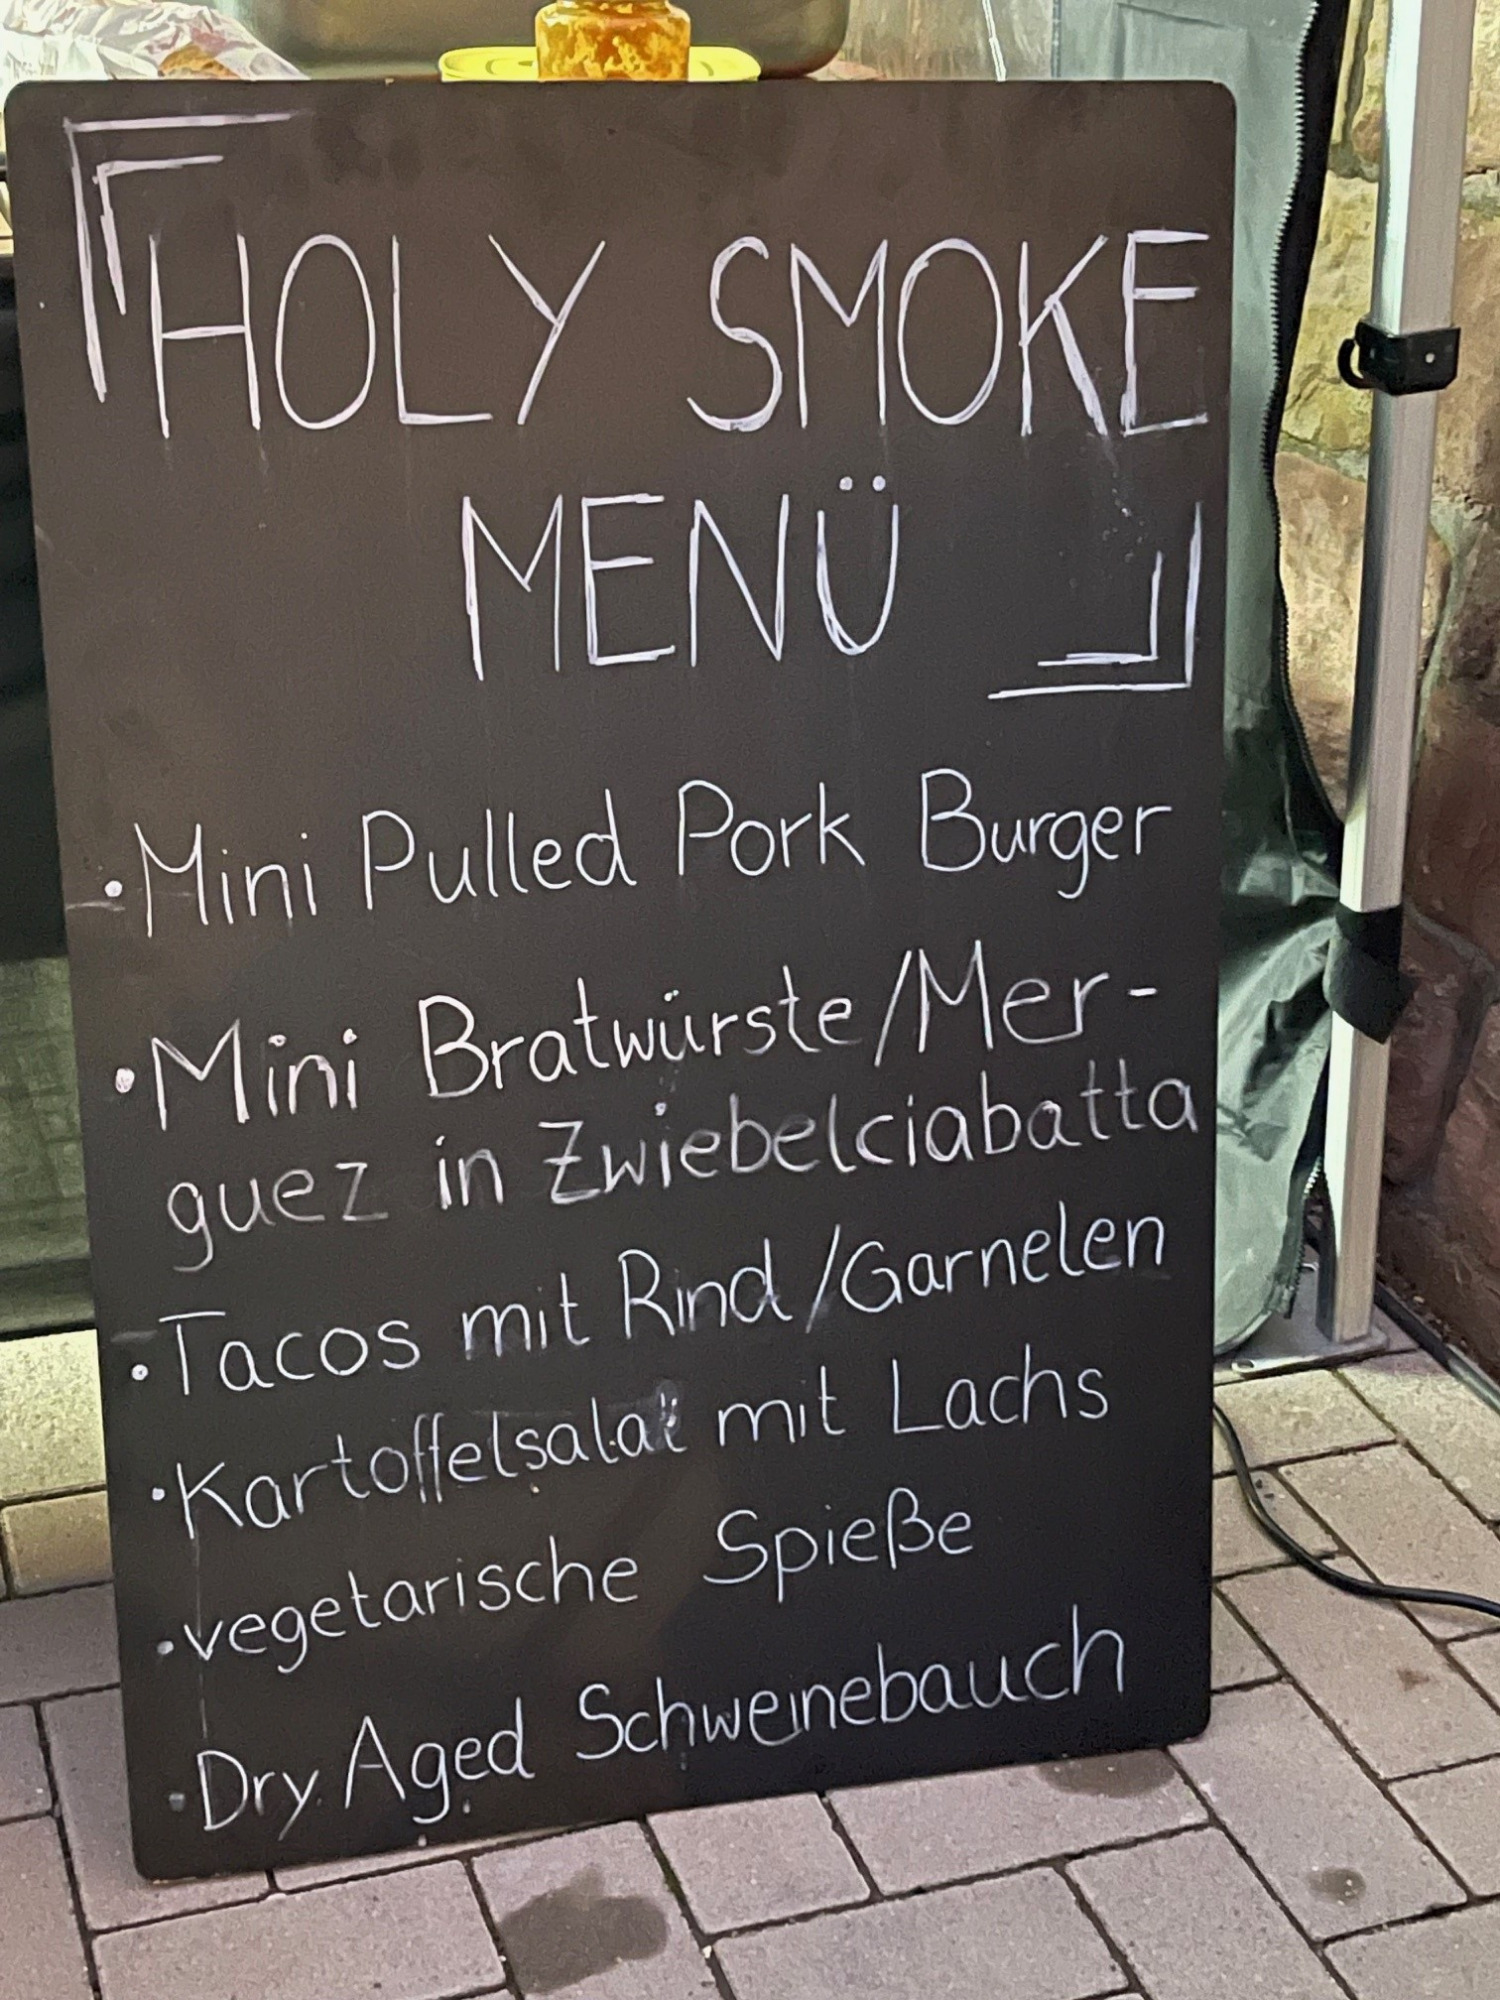 HOLY SMOKE
MENÜ
• Mini Pulled Pork Burger
• Mini Bratwürste/Mer-
guez in Zwiebelciabatta
• Tacos mit Rind/Garnelen
• Kartoffelsalat mit Lachs
• vegetarische Spieße
• Dry Aged Schweinebauch